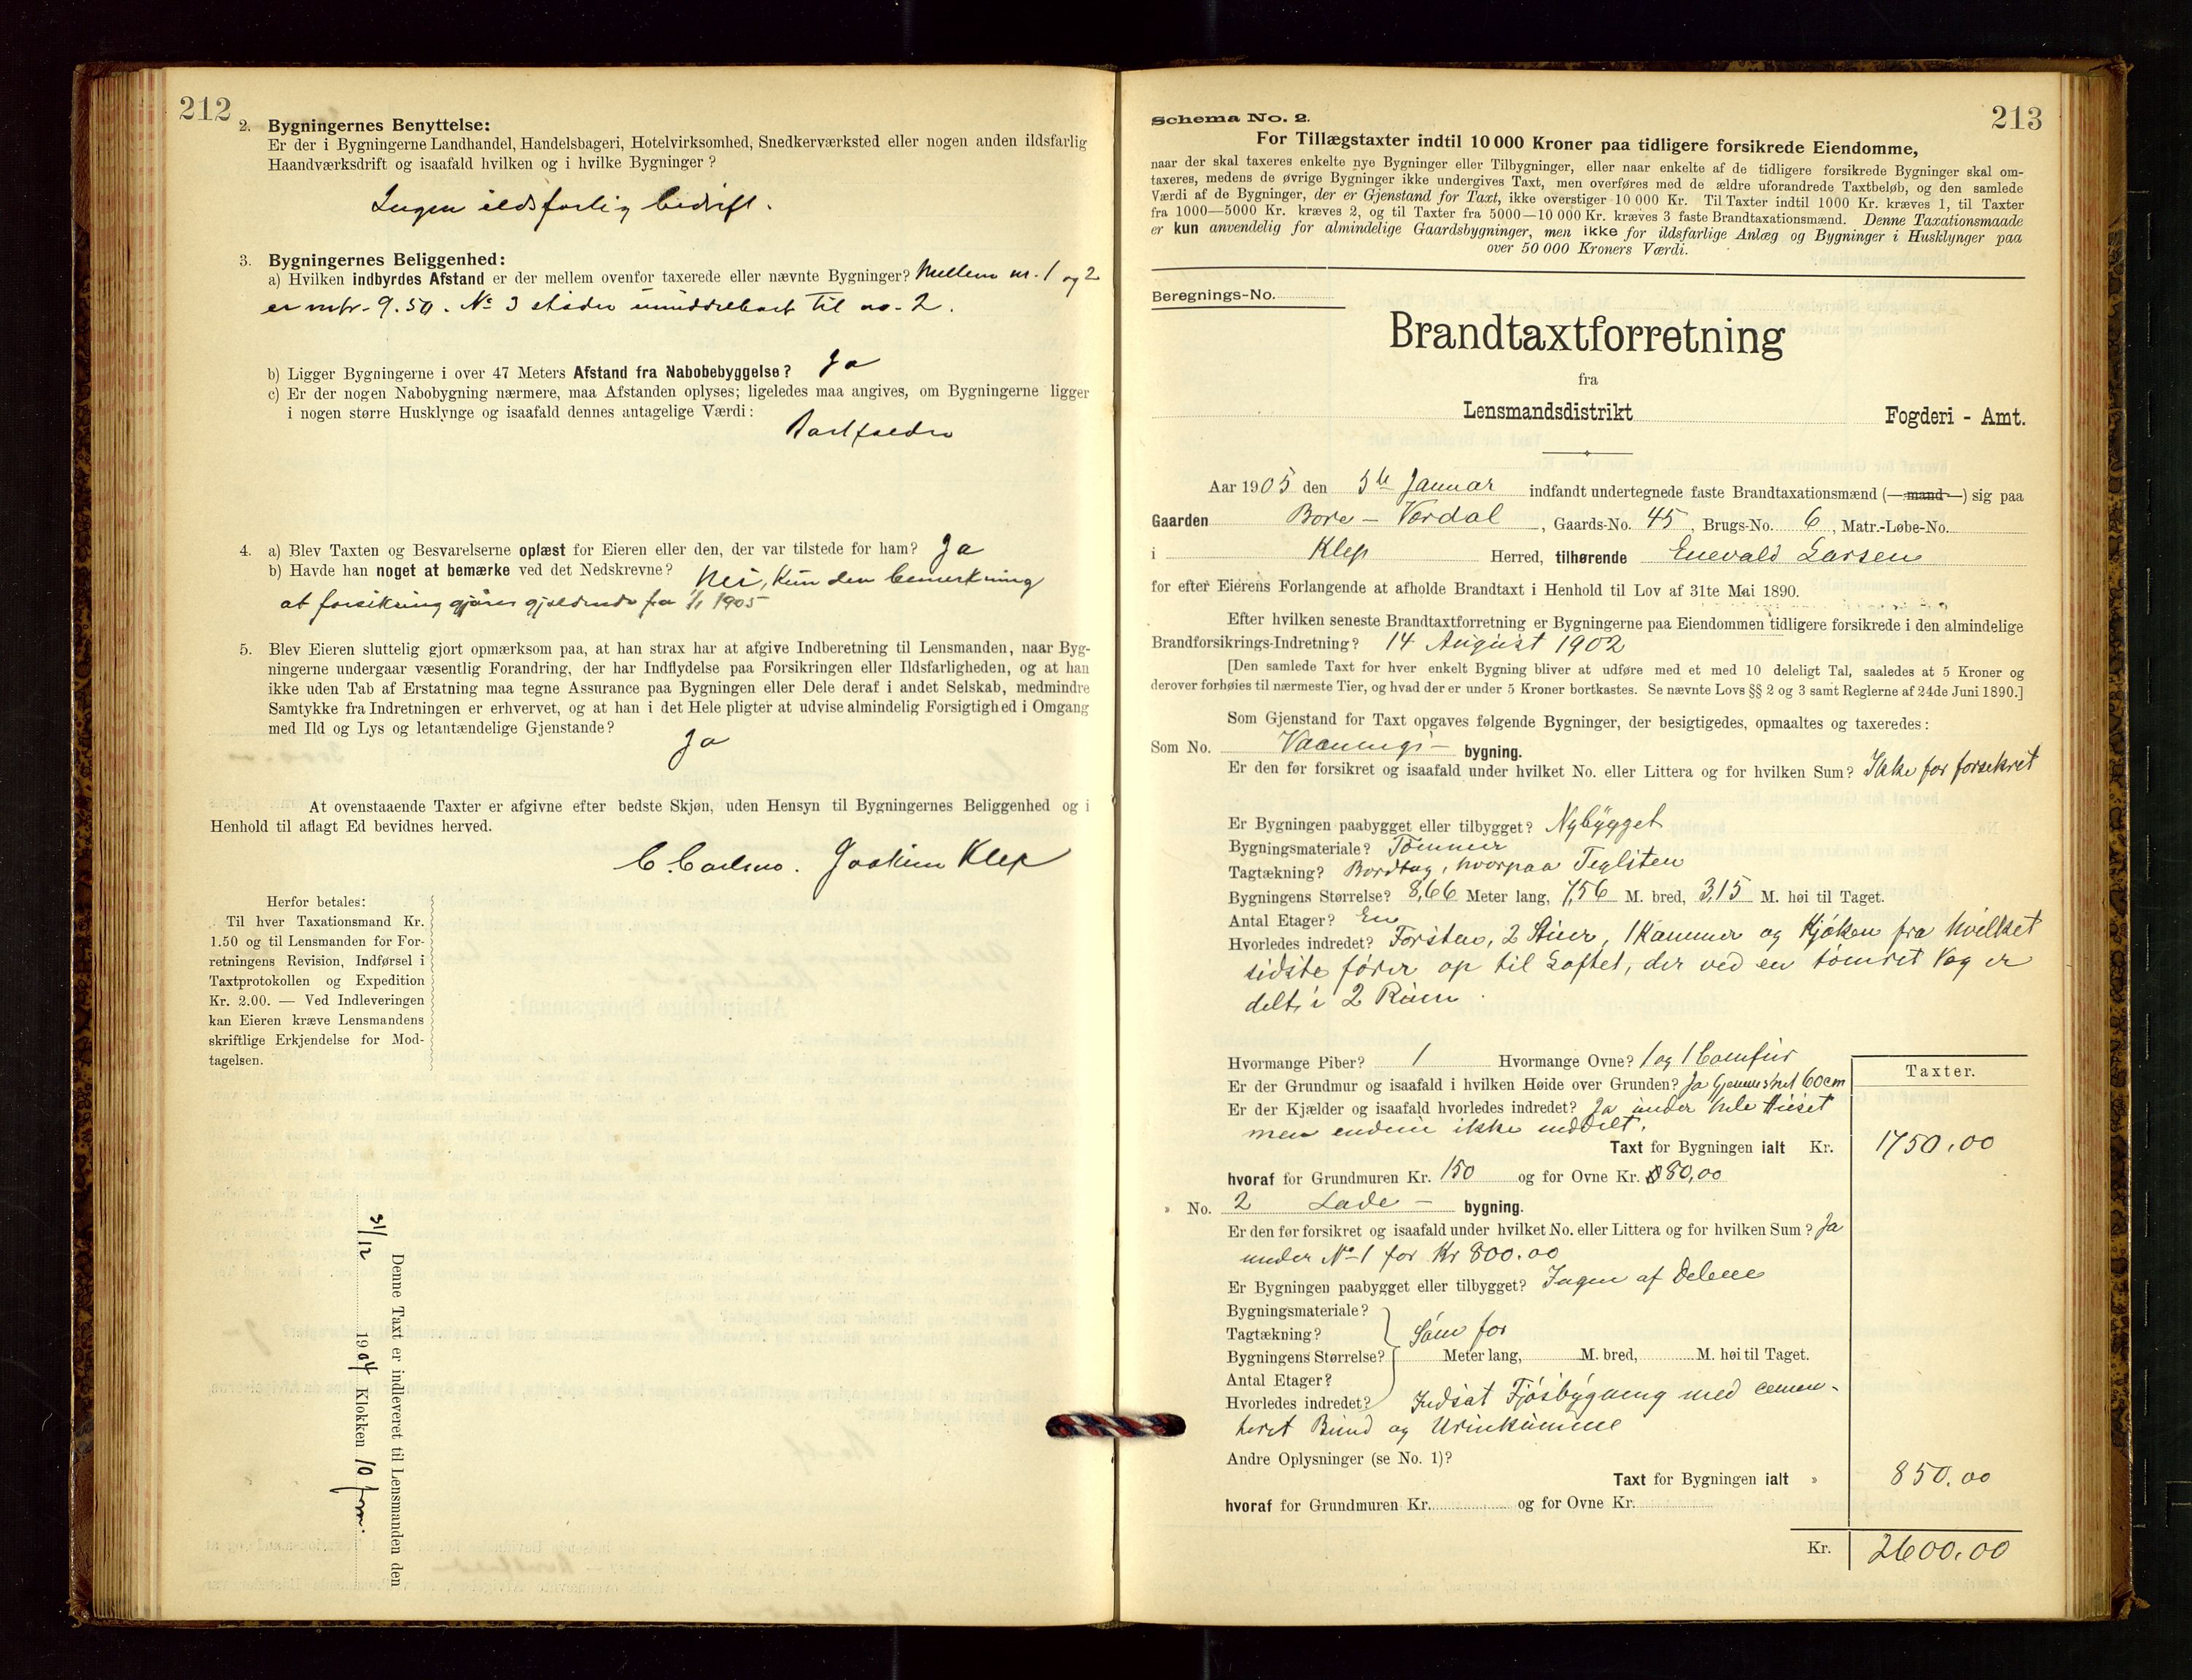 212
2. Bygningernes Benyttelse:
Er der i Bygningerne Landhandel, Handelsbageri, Hotelvirksomhed, Snedkerværksted eller nogen anden ildsfarlig
Haandværksdrift og isaafald hvilken og i hvilke Bygninger?
Ingen ildsfarlig bedrift.
3. Bygningernes Beliggenhed:
a) Hvilken indbyrdes Afstand er der mellem ovenfor taxerede eller nævnte Bygninger? Mellem nr. 1 og 2
er mtr. 9.50. No 3 støder umiddelbart til no. 2.
b) Ligger Bygningerne i over 47 Meters Afstand fra Nabobebyggelse? Ja
c) Er der nogen Nabobygning nærmere, maa Afstanden oplyses; ligeledes maa angives, om Bygningerne ligger
i nogen større Husklynge og isaafald dennes antagelige Værdi:
Bortfalder
4. a) Blev Taxten og Besvarelserne oplæst for Eieren eller den, der var tilstede for ham? Ja
b) Havde han noget at bemærke ved det Nedskrevne? Nei, Kun den bemerkning
at forsikring gjøres gjældende fra 1/1 1905
5. Blev Eieren sluttelig gjort opmærksom paa, at han strax har at afgive Indberetning til Lensmanden, naar Byg-
ningerne undergaar væsentlig Forandring, der har Indflydelse paa Forsikringen eller Ildsfarligheden, og at han
ikke uden Tab af Erstatning maa tegne Assurance paa Bygningen eller Dele deraf i andet Selskab, medmindre
Samtykke fra Indretningen er erhvervet, og at han i det Hele pligter at udvise almindelig Forsigtighed i Omgang
med Ild og Lys og letantændelige Gjenstande?
Ja
At ovenstaaende Taxter er afgivne efter bedste Skjøn, uden Hensyn til Bygningernes Beliggenhed og i
Henhold til aflagt Ed bevidnes herved.
Joakim Klep
Herfor betales:
Til hver Taxationsmand Kr.
1.50 og til Lensmanden for For-
retningens Revision, Indførsel i
Taxtprotokollen og Expedition
Kr. 2.00. — Ved Indleveringen
kan Eieren kræve Lensmandens
skriftlige Erkjendelse for Mod-
tagelsen.
Denne Taxt er indleveret til Lensmanden den
31/12 1904 Klokken 10 form.
213
Schema No. 2.
For Tillægstaxter indtil 10 000 Kroner paa tidligere forsikrede Eiendomme,
naar der skal taxeres enkelte nye Bygninger eller Tilbygninger, eller naar enkelte af de tidligere forsikrede Bygninger skal om-
taxeres, medens de øvrige Bygninger ikke undergives Taxt, men overføres med de ældre uforandrede Taxtbeløb, og den samlede
Værdi af de Bygninger, der er Gjenstand for Taxt, ikke overstiger 10 000 Kr. Til Taxter indtil 1000 Kr. kræves 1, til Taxter
fra 1000—5000 Kr. kræves 2, og til Taxter fra 5000—10 000 Kr. kræves 3 faste Brandtaxationsmænd. Denne Taxationsmaade
er kun anvendelig for almindelige Gaardsbygninger, men ikke for ildsfarlige Anlæg og Bygninger i Husklynger paa
over 50 000 Kroners Værdi.
Beregnings-No.
Brandtaxtforretning
fra
Lensmandsdistrikt Fogderi - Amt.
Aar 1905 den 5te Januar indfandt undertegnede faste Brandtaxationsmænd (—mand—) sig paa
Gaarden Bore - Vardal, Gaards-No. 45, Brugs-No. 6, Matr.-Løbe-No.
i Klep Herred, tilhørende Enevald Larsen
for efter Eierens Forlangende at afholde Brandtaxt i Henhold til Lov af 31te Mai 1890.
Efter hvilken seneste Brandtaxtforretning er Bygningerne paa Eiendommen tidligere forsikrede i den almindelige
Brandforsikrings-Indretning? 14 August 1902
[Den samlede Taxt for hver enkelt Bygning bliver at udføre med et med 10 deleligt Tal, saaledes at 5 Kroner og
derover forhøies til nærmeste Tier, og hvad der er under 5 Kroner bortkastes. Se nævnte Lovs §§ 2 og 3 samt Reglerne af 24de Juni 1890.]
Som Gjenstand for Taxt opgaves følgende Bygninger, der besigtigedes, opmaaltes og taxeredes:
Som No. Vaanings- bygning.
Er den før forsikret og isaafald under hvilket No. eller Littera og for hvilken Sum? Ikke før forsekret
Er Bygningen paabygget eller tilbygget? Nybygget
Bygningsmateriale? Tømmer
Tagtækning? Bordtag, hvorpaa Teglsten
Bygningens Størrelse? 8,66 Meter lang, 7,56 M. bred, 3,15 M. høi til Taget.
Antal Etager? En
Hvorledes indredet? Forstue, 2 Stuer, 1 Kammer og Kjøken fra hvilket
sidste fører op til Loftet, der ved en tømret Væg er
delt i 2 Rum.
Hvormange Piber? 1 Hvormange Ovne? 1 og 1 Comfur
Er der Grundmur og isaafald i hvilken Høide over Grunden? Ja Gjennemsnit 60 cm
Er der Kjælder og isaafald hvorledes indredet? Ja under hele Huset
men endnu ikke inddelt.
Taxter.
Taxt for Bygningen ialt Kr. 1750.00
hvoraf for Grundmuren Kr. 150 og for Ovne Kr. 80,00
» No. 2 Lade- bygning.
Er den før forsikret og isaafald under hvilket No. eller Littera og for hvilken Sum? Ja
under No 1 for Kr 800.00
Er Bygningen paabygget eller tilbygget? Ingen af Delene
Bygningsmateriale?
Tagtækning? Som før
Bygningens Størrelse? Meter lang, M. bred, M. høi til Taget.
Antal Etager?
Hvorledes indredet? Indsat Fjøsbygning med cemen-
teret Bund og Urinkumme
Andre Oplysninger (se No. 1)?
Taxt for Bygningen ialt » 850.00
hvoraf for Grundmuren Kr. og for Ovne Kr.
Kr. 2600.00